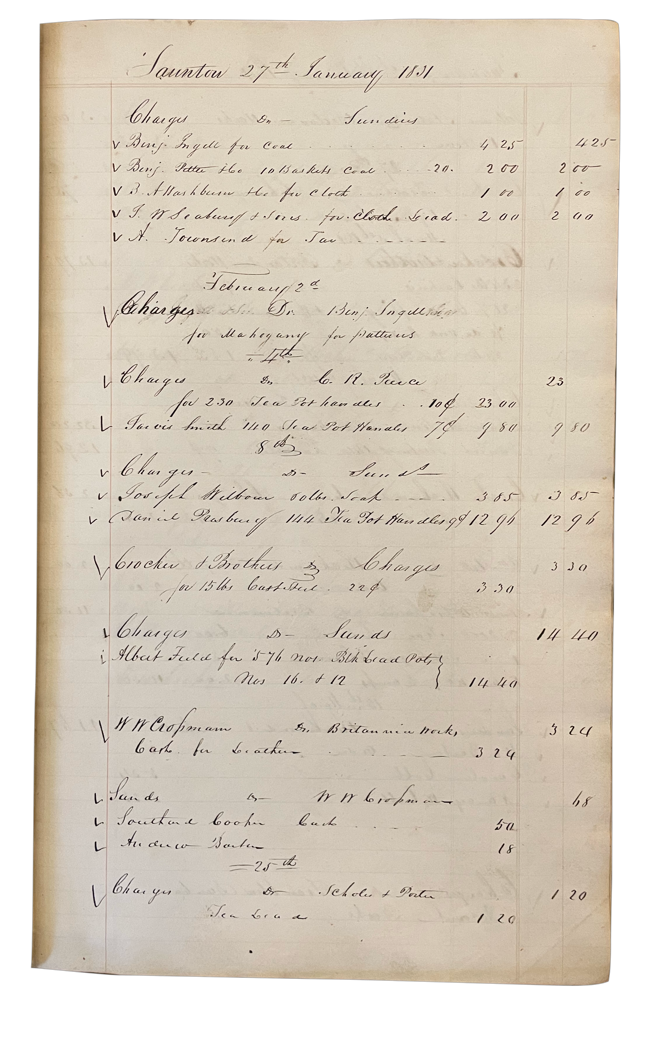 Taunton 27th January 1831
Charges Dr — Sundries
Benj. Ingell for Coal 4 25 4 25
Benj. & Co 10 Baskets Coal 20. 2 00 2 00
Washburn & Co for Cloth 1 00 1 00
W Seabury & Sons for Cloth Lead. 2 00 2 00
A. Townsend for Tar
February 2d
Charges Dr. Benj Ingell
for Mahogany for patterns
4th
Charges Dr. C. R. Peirce 23
for 230 Tea Pot handles 10¢ 23 00
Smith 140 Tea Pot Handles 7¢ 9 80 9 80
8th
Charges — Dr — Sunds
Joseph Wilbour lbs. Soap 3 85 3 85
Daniel Presbury 144 Tea Pot Handles 9¢ 12 96 12 96
Crocker & Brothers Dr Charges 3 30
for 15 lbs Cast Steel. 22¢ 3 30
Charges Dr — Sunds 14 40
Albert Field for 576 Nos Blk Lead Pots
Nos 16. & 12 14 40
W W Crossman Dr. Britannia Works 3 24
Cash for Leather 3 24
Sunds Dr — W W Crossman 68
Southard Cooper Cash 50
Andrew 18
25th
Charges Dr Scholes & Porter 1 20
Tea Lead 1 20